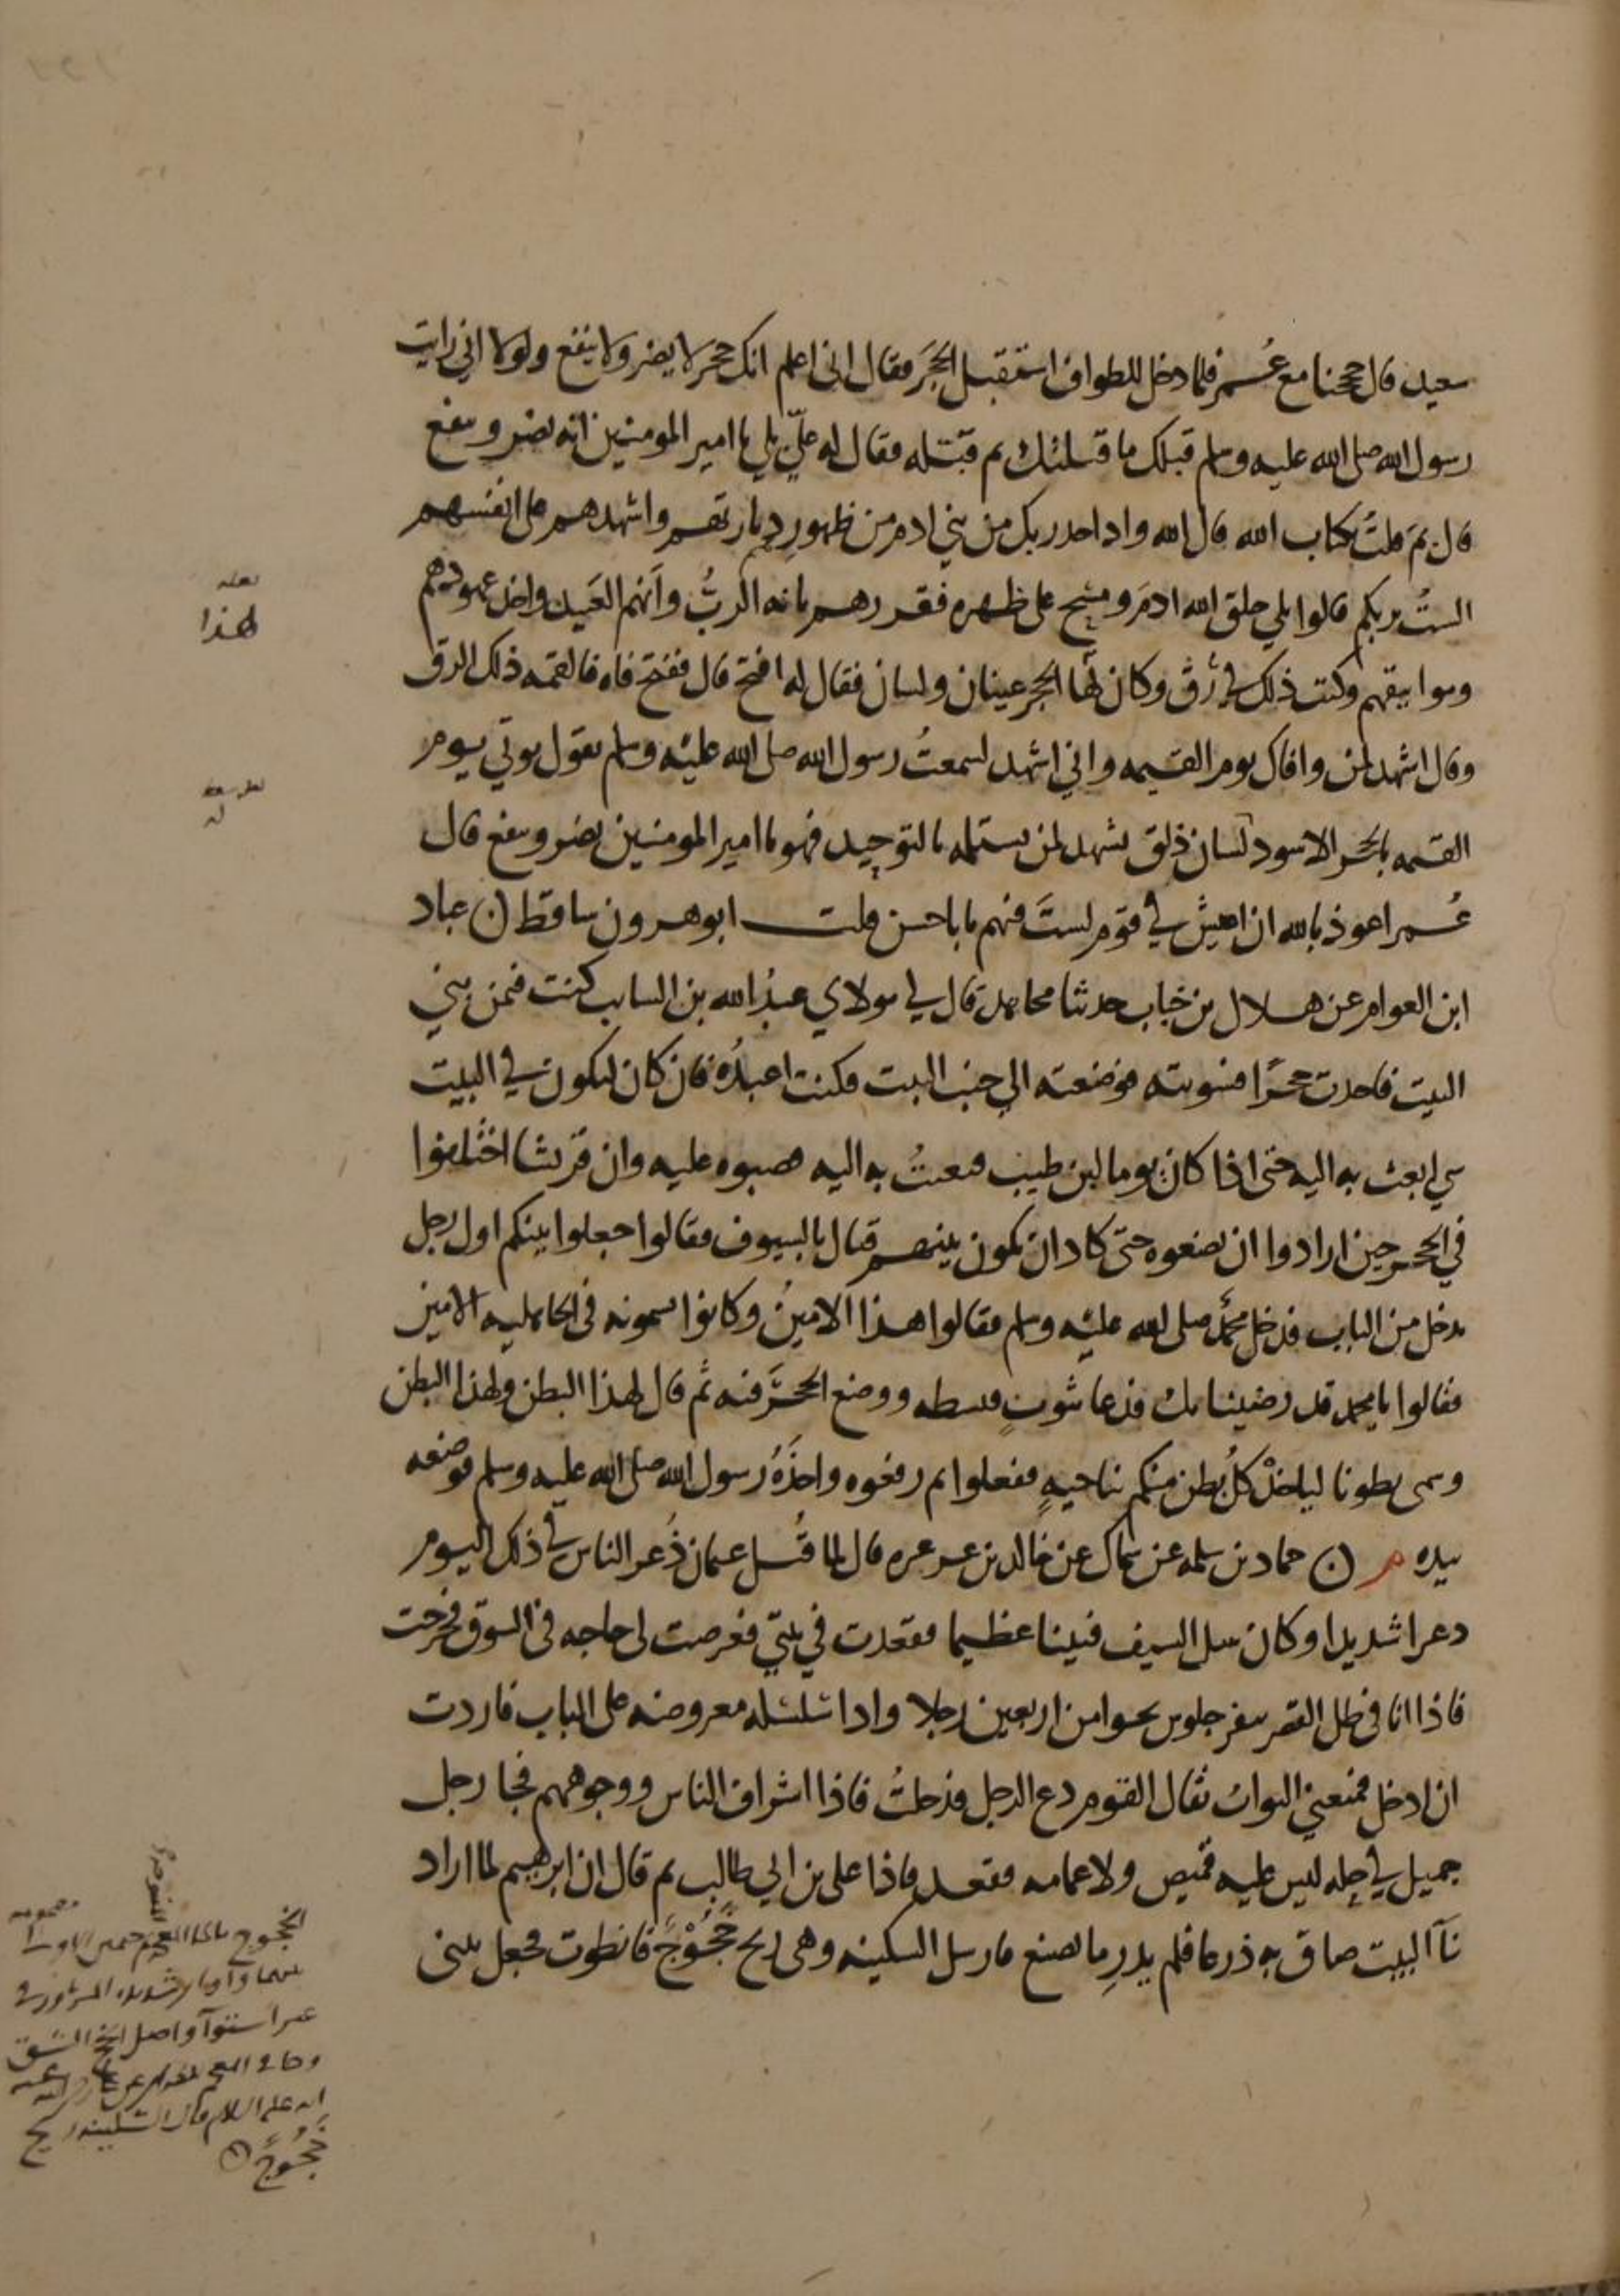 سعيد قال حججنا مع عُمر فلما دخل للطواف استقبل الحجَر فقال اني اعلم انك حجر لا يضر ولا ينفع ولولا اني رايت
رسول الله صلى الله عليه وسلم قبلك ما قبلتك ثم قبّله فقال له عليّ بلي يا امير المومنين انه يضر وينفع
قال ثمَ قلتُ بكتاب الله قال الله واذ اخذ ربك من بني ادم من ظهورهم ذرياتهم واشهدهم على انفسهم
الستُ بربكم قالوا بلي خلق الله ادمَ ومسح على ظهره فقررهم بانه الربُّ وانهم العَبيد واخذ عهودهم
ومواثيقهم وكتب ذلك في رَق وكان لهذا الحجر عينان ولسان فقال له افتح قال ففتح فاه فالقمه ذلك الرق
وقال اشهد لمن وافاك يوم القيمه واني اشهد لسمعتُ رسول الله صلى الله عليه وسلم يقول يوتي يوم
القيمه بالحجر الاسود لسان ذلق يشهد لمن يستلمه بالتوحيد فهو يا امير المومنين يضر وينفع قال
عُمر اعوذ بالله ان اعيش في قوم لستَ فيهم يابا حسن قلت ابو هرون ساقط ن عباد
ابن العوام عن هلال بن خباب حدثنا مجاهد قال لي مولاي عبدُ الله بن السايب كنت فيمن بني
البيت فاخذت حجرًا فسويته فوضعته الي جنب البيت فكنت اعبدُه فان كان ليكون في البيت
شي ابعث به اليه حتى اذا كان يوما لبن طيب فبعثتُ به اليه فصبوه عليه وان قريشا اختلفوا
في الحجر حين ارادوا ان يضعوه حتى كاد ان يكون بينهم قتال بالسيوف فقالوا اجعلوا بينكم اول رجل
يدخل من الباب فدخل محمدٌ صلى الله عليه وسلم فقالوا هذا الامينُ وكانوا يسمونه في الجاهليه الامين
فقالوا يا محمد قد رضينا بك فدعا بثوبٍ فبسطه ووضع الحجرَ فيه ثم قال لهذا البطن ولهذا البطن
وسمى بطونا لياخذْ كلُ بطن منكم بناحيهٍ ففعلوا ثم رفعوه واخذَهُ رسول الله صلى الله عليه وسلم فوضعه
بيده ن حماد بن سلمه عن سماك عن خالد بن عرعره قال لما قُتل عثمان ذُعر الناس في ذلك اليوم
دعرا شديدا وكان سل السيف فينا عظيما فقعدت في بيتي فعرضت لي حاجه في السوق فخرجت
فاذا انا في ظل القصر بنفر جلوس نحوا من اربعين رجلا واذا سلسله معروضه على الباب فاردت
ان ادخل فمنعني البوابُ فقال القوم دع الرجل فدخلتُ فاذا اشراف الناس ووجوههم فجا رجل
جميل في حله ليس عليه قميص ولا عمامه فقعد فاذا على بن ابي طالب ثم قال ان ابرهيم لما اراد
بنآ البيت ضاق به ذرعا فلم يدرِ ما يصنع فارسل السكينه وهي ريح خَجُوْجٌ فانطوت فجعل يبنى
لعله
لهذا
له
الخجوج
واصل الخج الشق
السكينه ريح
خَجُوجٌ